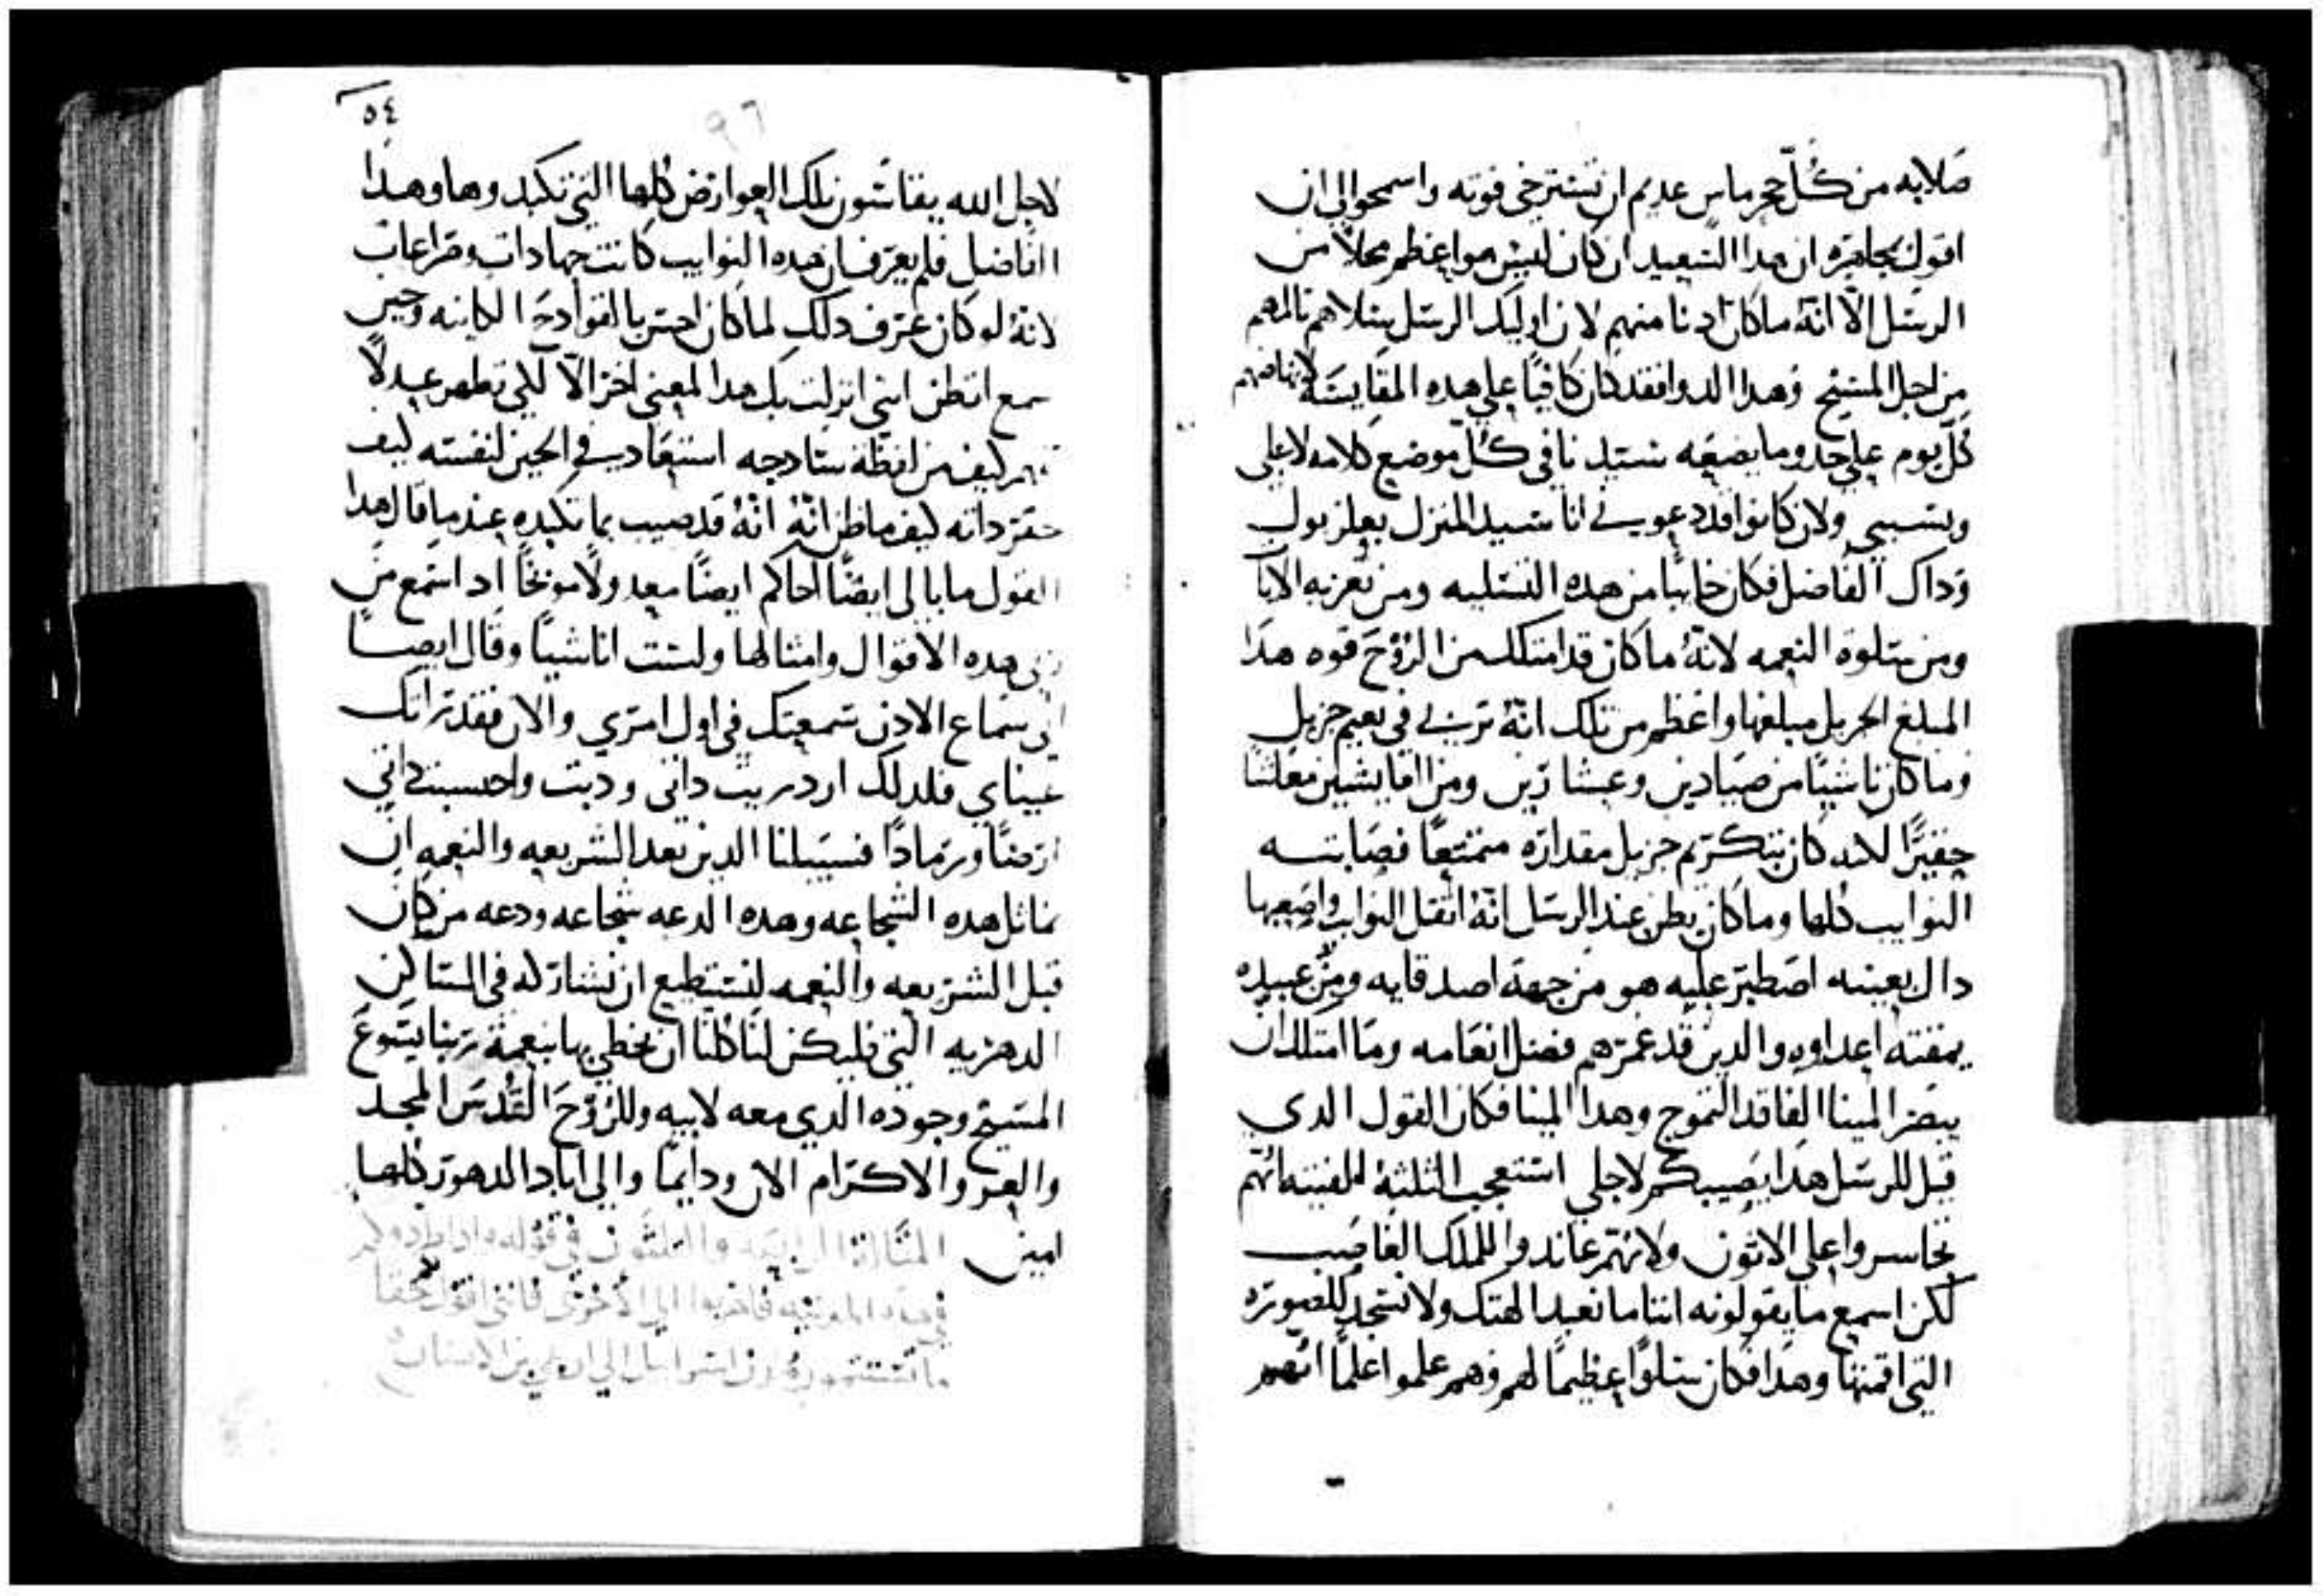 صلابه من كُلّ حجر ماس عديم ان تسترخي قوته واسمحوا لي ان
اقول مجاهره ان هدا السعيد ان كان ليس هو اعظم محلاً من
الرسل الّا انّهُ ما كان ادنا منهم لان اوليك الرسل سلاهم تالمهم
من اجل المسيح وهدا الدوا فقد كان كافيًا علي هده المقايسة
كلّ يوم علي حد وما يضعه سيدنا في كُلّ موضع كلامه لاجلي
وبسببي ولان كانوا قد دعوني انا سيد المنزل بعلزبول
وداك الفاضل فكان خايبًا من هده التسليه ومن تعزيه الايات
ومن سلوة النعمه لانّهُ ما كان قد امتلك من الرُوح قوه هدا
المبلغ الجزيل مبلغها واعظم من تلك انّهُ تربي في نعيم جزيل
وما كان ناشيًا من صيادين وعشارين ومن افا يشين معاشًا
حقيرًا لاكنه كان بتكريم جزيل مقداره متمتعًا فصابته
النوايب كلها وما كان يظن عند الرسل انّهُ اثقل النوايب واصعبها
داك بعينه اصطبر عليه هو من جهة اصدقايه ومن عبيده
يمقته اعداوه والدين قد غمرهم فضل انعامه وما امتلك ان
يبصر المينا الفاقد التموج وهدا المينا فكان القول الدي
قيل للرسل هدا يصيبكم لاجلي استعجب الثلثة الفتيه انهم
تجاسروا علي الاتون ولانهم عاندوا الملك الغاصب
لكن اسمع ما يقولونه اننا ما نعبد الهتك ولا نسجد للصوره
التي اقمتها وهدا فكان سلوًا عظيمًا لهم وهم علموا علمًا انّهم
٥٤
٩٦
لاجل الله يقاسون تلك العوارض كلها التي تكبدوها وهدا
الفاضل فلم يعرف ان هده النوايب كانت جهادات وصراعات
لانّهُ لو كان عرف دلك لما كان احس بالفوادح الكاينه وحين
سمع اتظن انني انزلت بك هدا المعني اخر الّا لكي تظهر عدلاً
كيف من لفظة سادجه استفاد في الحين لنفسه كيف
حقر داته كيف ما ظن انّهُ انّهُ قد صيب بما تكبده عند ما قال هدا
القول ما بالي ايضًا احاكم ايضًا معد ولا موبخًا اد استمع من
ربي هده الاقوال وامثالها ولست انا شيًا وقال ايضًا
اني سماع الادن سمعتك في اول امري والان فقد تراتك
عيناي فلدلك ازدريت داتي ودبت واحسبت داتي
ارضًا ورمادًا فسبيلنا الدين بعد الشريعه والنعمه ان
نماثل هده الشجاعه وهده الدعه شجاعه ودعه من كان
قبل الشريعه والنعمه لنستطيع ان نشاركه في المساكن
الدهريه التي فليكن لنا كلنا ان نحظي بها بنعمة ربنا يسوع
المسيح وجوده الدي معه لابيه وللرُوح القُدس المجد
والعز والاكرام الان ودايمًا والي اباد الدهور كلها
امين المقالة الرابعه والثلثون في قوله وادا طردوكم
في هده المدينه فاهربوا الي الاخري فانني اقول لكم حقًا
ما تستتمون مدن اسراييل الي ان يجي بن الانسان